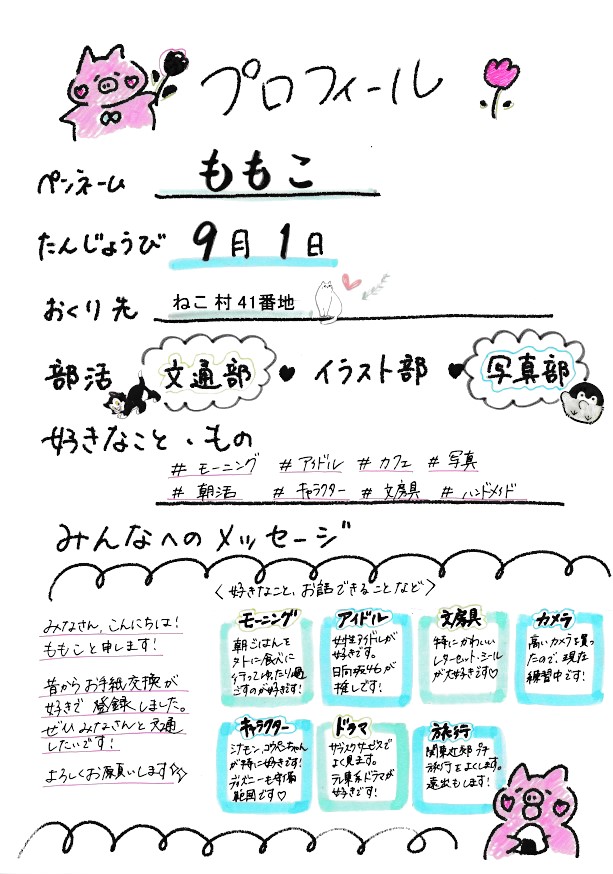 プロフィール
ペンネーム ももこ
たんじょうび 9月1日
おくり先 ねこ村41番地
部活 文通部 ♥ イラスト部 ♥ 写真部
好きなこと・もの
# モーニング # アイドル # カフェ # 写真
# 朝活 # キャラクター # 文房具 # ハンドメイド
みんなへのメッセージ
〈好きなこと、お話できることなど〉
みなさん、こんにちは!
ももこと申します!
昔からお手紙交換が
好きで登録しました。
ぜひみなさんと文通
したいです!
よろしくお願いします☆
モーニング
朝ごはんを
外に食べに
行ってゆったり過
ごすのが好きです!
アイドル
女性アイドルが
好きです。
日向坂46が
推しです!
文房具
特にかわいい
レターセット・シール
が大好きです♡
カメラ
高いカメラを買っ
たので、現在
練習中です!
キャラクター
シナモン、コウペンちゃん
が特に好きです!
ディズニーも守備
範囲です♡
ドラマ
サブスクサービスで
よく見ます。
テレ東系ドラマが
好きです!
旅行
関東近郊プチ
旅行をよくします。
遠出もします!